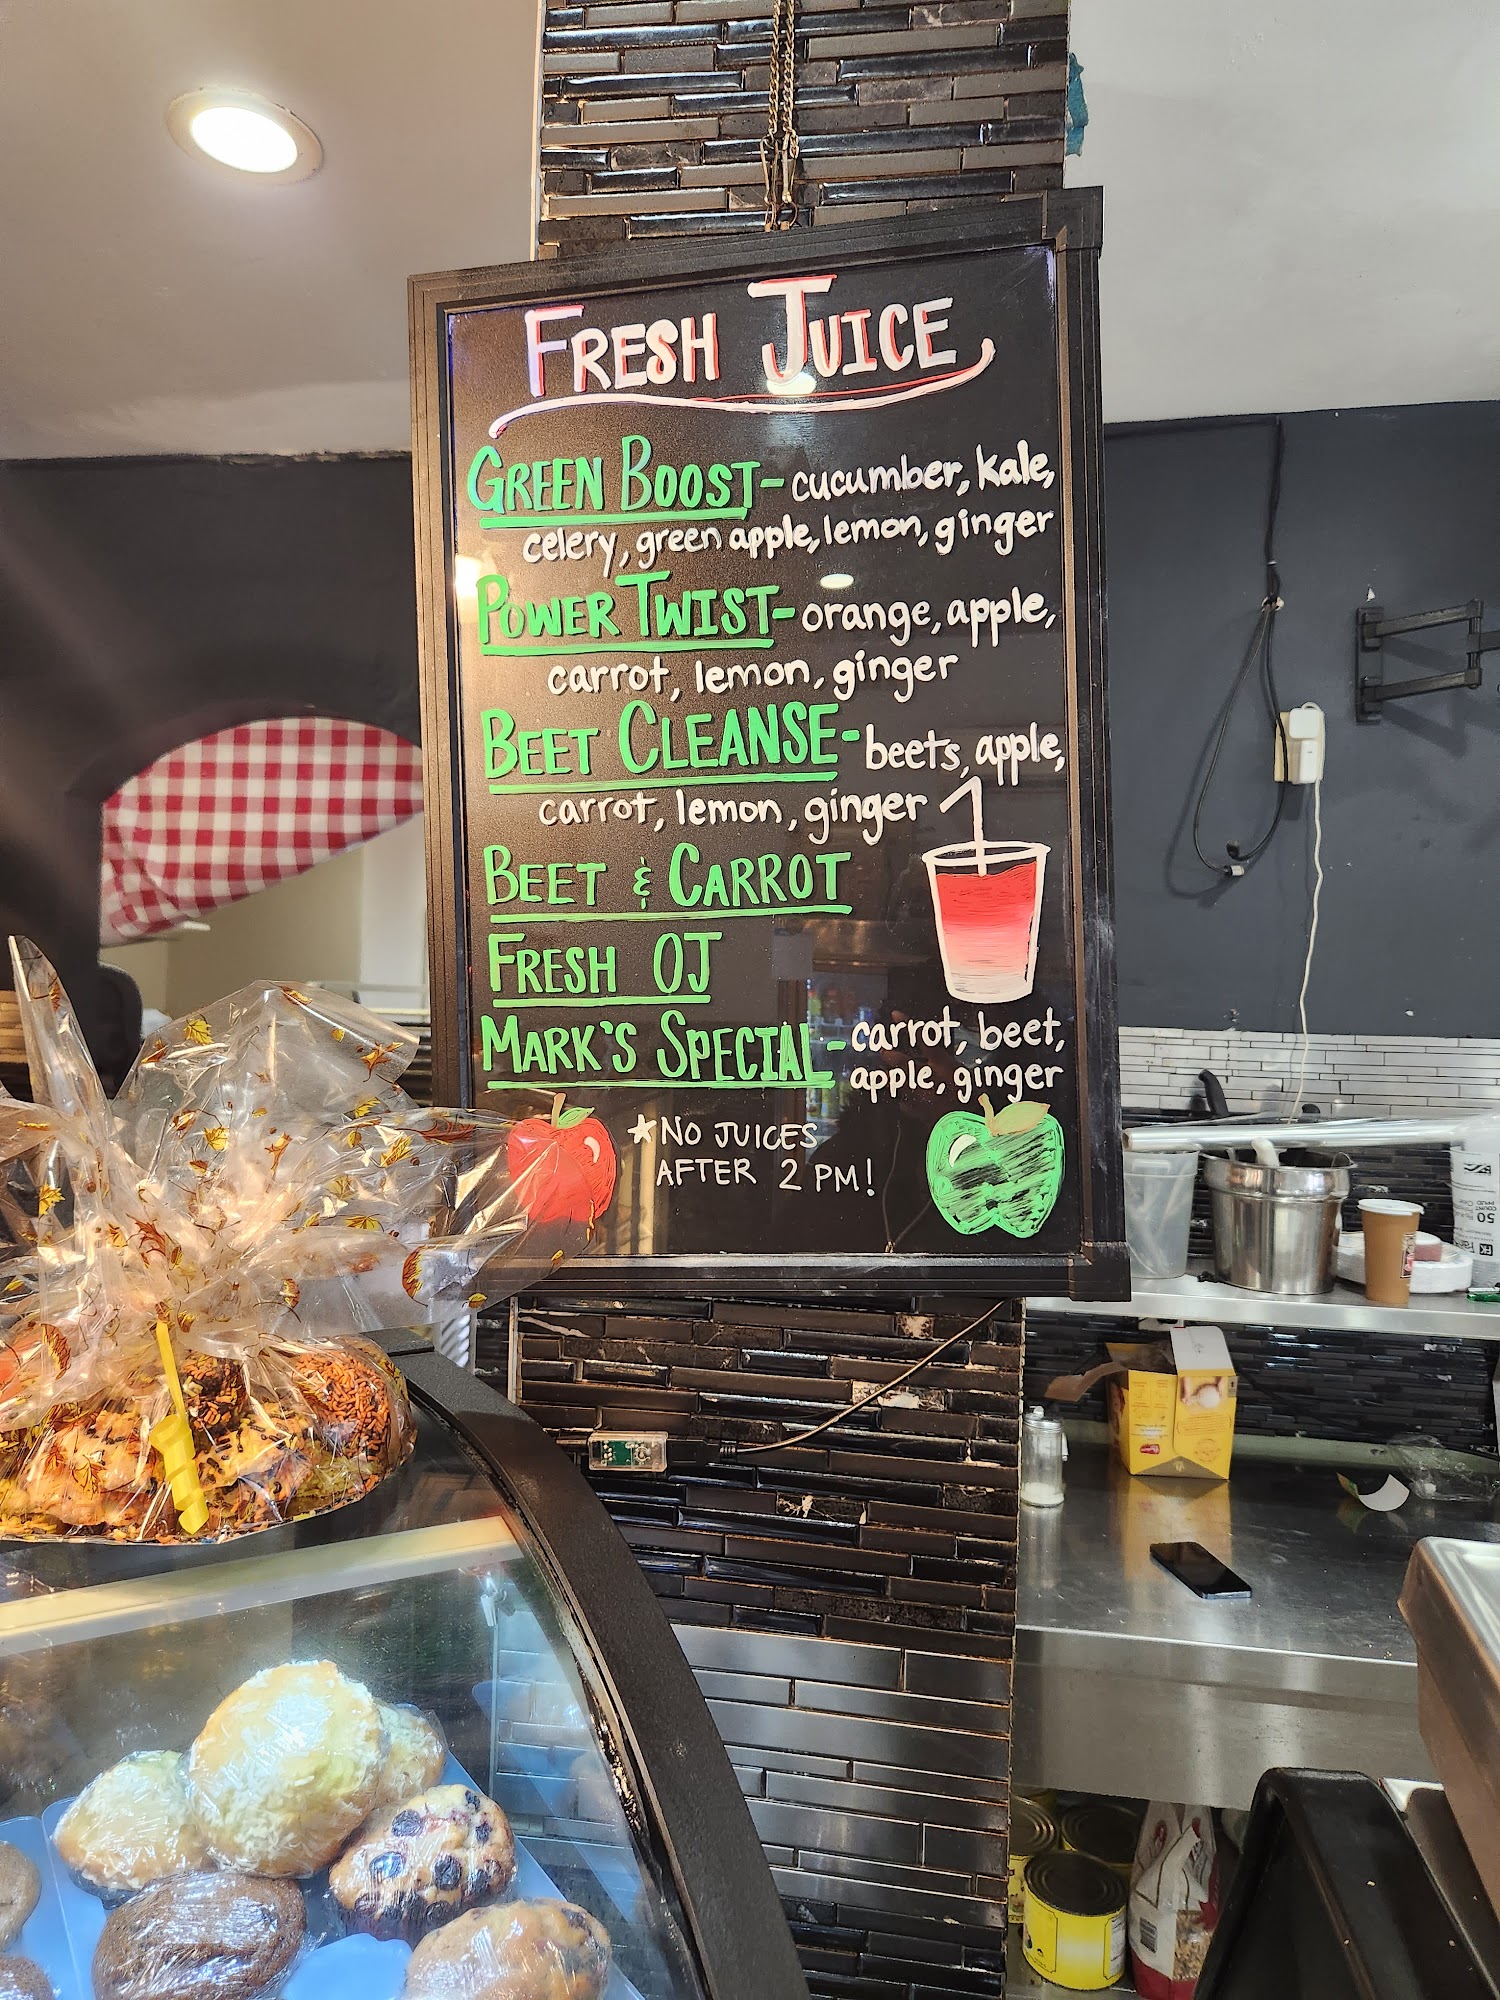 FRESH JUICE
GREEN BOOST- cucumber, kale,
celery, green apple, lemon, ginger
POWER TWIST- orange, apple,
carrot, lemon, ginger
BEET CLEANSE- beets, apple,
carrot, lemon, ginger
BEET & CARROT
FRESH OJ
MARK'S SPECIAL- carrot, beet,
apple, ginger
*NO JUICES
AFTER 2 PM!
50
COUNT